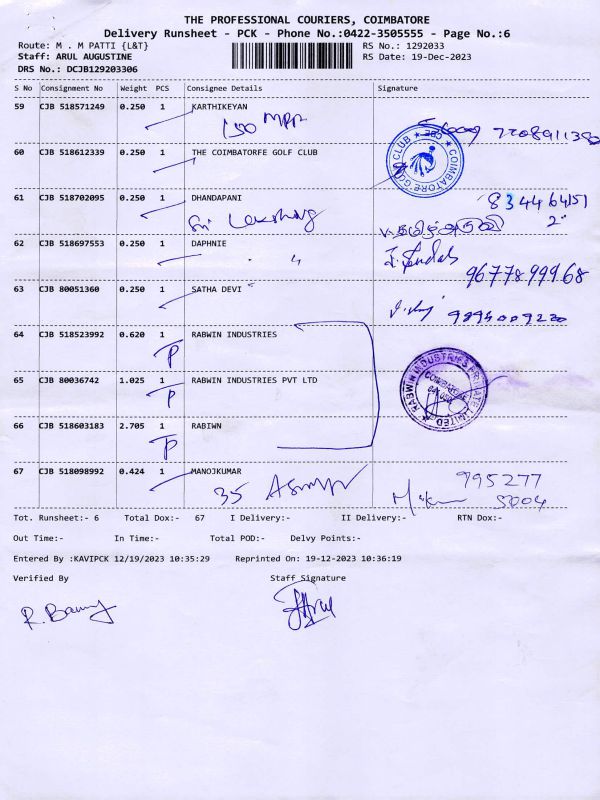 THE PROFESSIONAL COURIERS, COIMBATORE
Delivery Runsheet - PCK - Phone No.:0422-3505555 - Page No.:6
Route: M . M PATTI {L&T} RS No.: 1292033
Staff: ARUL AUGUSTINE RS Date: 19-Dec-2023
DRS No.: DCJB129203306
S No Consignment No Weight PCS Consignee Details Signature
59 CJB 518571249 0.250 1 KARTHIKEYAN
60 CJB 518612339 0.250 1 THE COIMBATORFE GOLF CLUB
COIMBATORE GOLF CLUB ★ CBE ★
61 CJB 518702095 0.250 1 DHANDAPANI
62 CJB 518697553 0.250 1 DAPHNIE
9677899968
63 CJB 80051360 0.250 1 SATHA DEVI
64 CJB 518523992 0.620 1 RABWIN INDUSTRIES
P
65 CJB 80036742 1.025 1 RABWIN INDUSTRIES PVT LTD
P
RABWIN INDUSTRIES PRIVATE LIMITED
66 CJB 518603183 2.705 1 RABIWN
P
67 CJB 518098992 0.424 1 MANOJKUMAR
995277
35
5004
Tot. Runsheet:- 6 Total Dox:- 67 I Delivery:- II Delivery:- RTN Dox:-
Out Time:- In Time:- Total POD:- Delvy Points:-
Entered By :KAVIPCK 12/19/2023 10:35:29 Reprinted On: 19-12-2023 10:36:19
Verified By Staff Signature